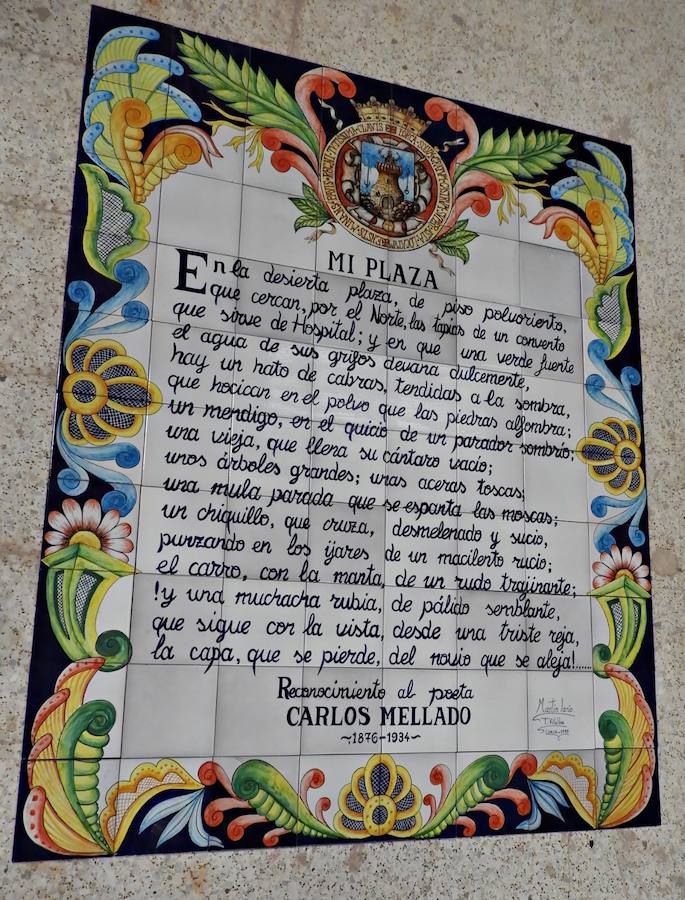 MI PLAZA
En la desierta plaza, de piso polvoriento,
que cercan, por el Norte, las tapias de un convento
que sirve de Hospital; y en que una verde fuente
el agua de sus grifos devana dulcemente,
hay un hato de cabras, tendidas a la sombra,
que hocican en el polvo que las piedras alfombra;
un mendigo, en el quicio de un parador sombrío;
una vieja, que llena su cántaro vacío;
unos árboles grandes; unas aceras toscas;
una mula parada que se espanta las moscas;
un chiquillo, que cruza, desmelenado y sucio,
punzando en los ijares de un macilento rucio;
el carro, con la manta, de un rudo trajinante;
!y una muchacha rubia, de pálido semblante,
que sigue con la vista, desde una triste reja,
la capa, que se pierde, del novio que se aleja!......
Reconocimiento al poeta
CARLOS MELLADO
~1876-1934~